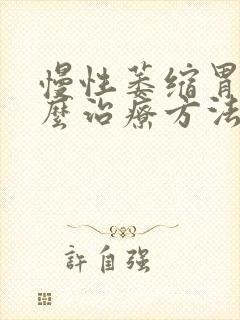 慢性萎缩胃
麼治療方法
許自强